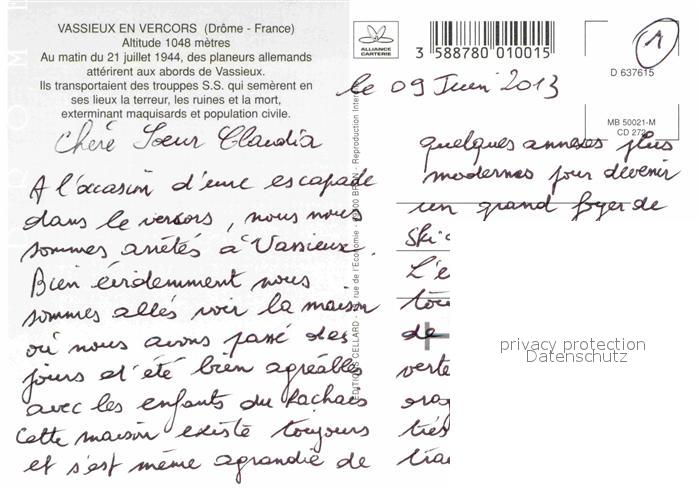 VASSIEUX EN VERCORS (Drôme - France)
Altitude 1048 mètres
Au matin du 21 juillet 1944, des planeurs allemands
attérirent aux abords de Vassieux.
Ils transportaient des trouppes S.S. qui semèrent en
ses lieux la terreur, les ruines et la mort,
exterminant maquisards et population civile.
ALLIANCE
CARTERIE
3 588780 010015
1
D 637615
MB 50021-M
CD 272
le 09 Juin 2013
Chère Soeur Claudia
A l'occasion d'une escapade
dans le vercors, nous nous
sommes arrêtés à Vassieux.
Bien évidemment nous
sommes allés voir la maison
où nous avons passé des
jours d'été bien agréables
avec les enfants du Rachais
Cette maison existe toujours
et s'est même agrandie de
quelques annexes plus
modernes pour devenir
un grand foyer de
Ski
L'é
tou
de
verte
ora
très
tra
EDITIONS CELLARD - rue de l'Economie - BRON - Reproduction Inter
privacy protection
Datenschutz